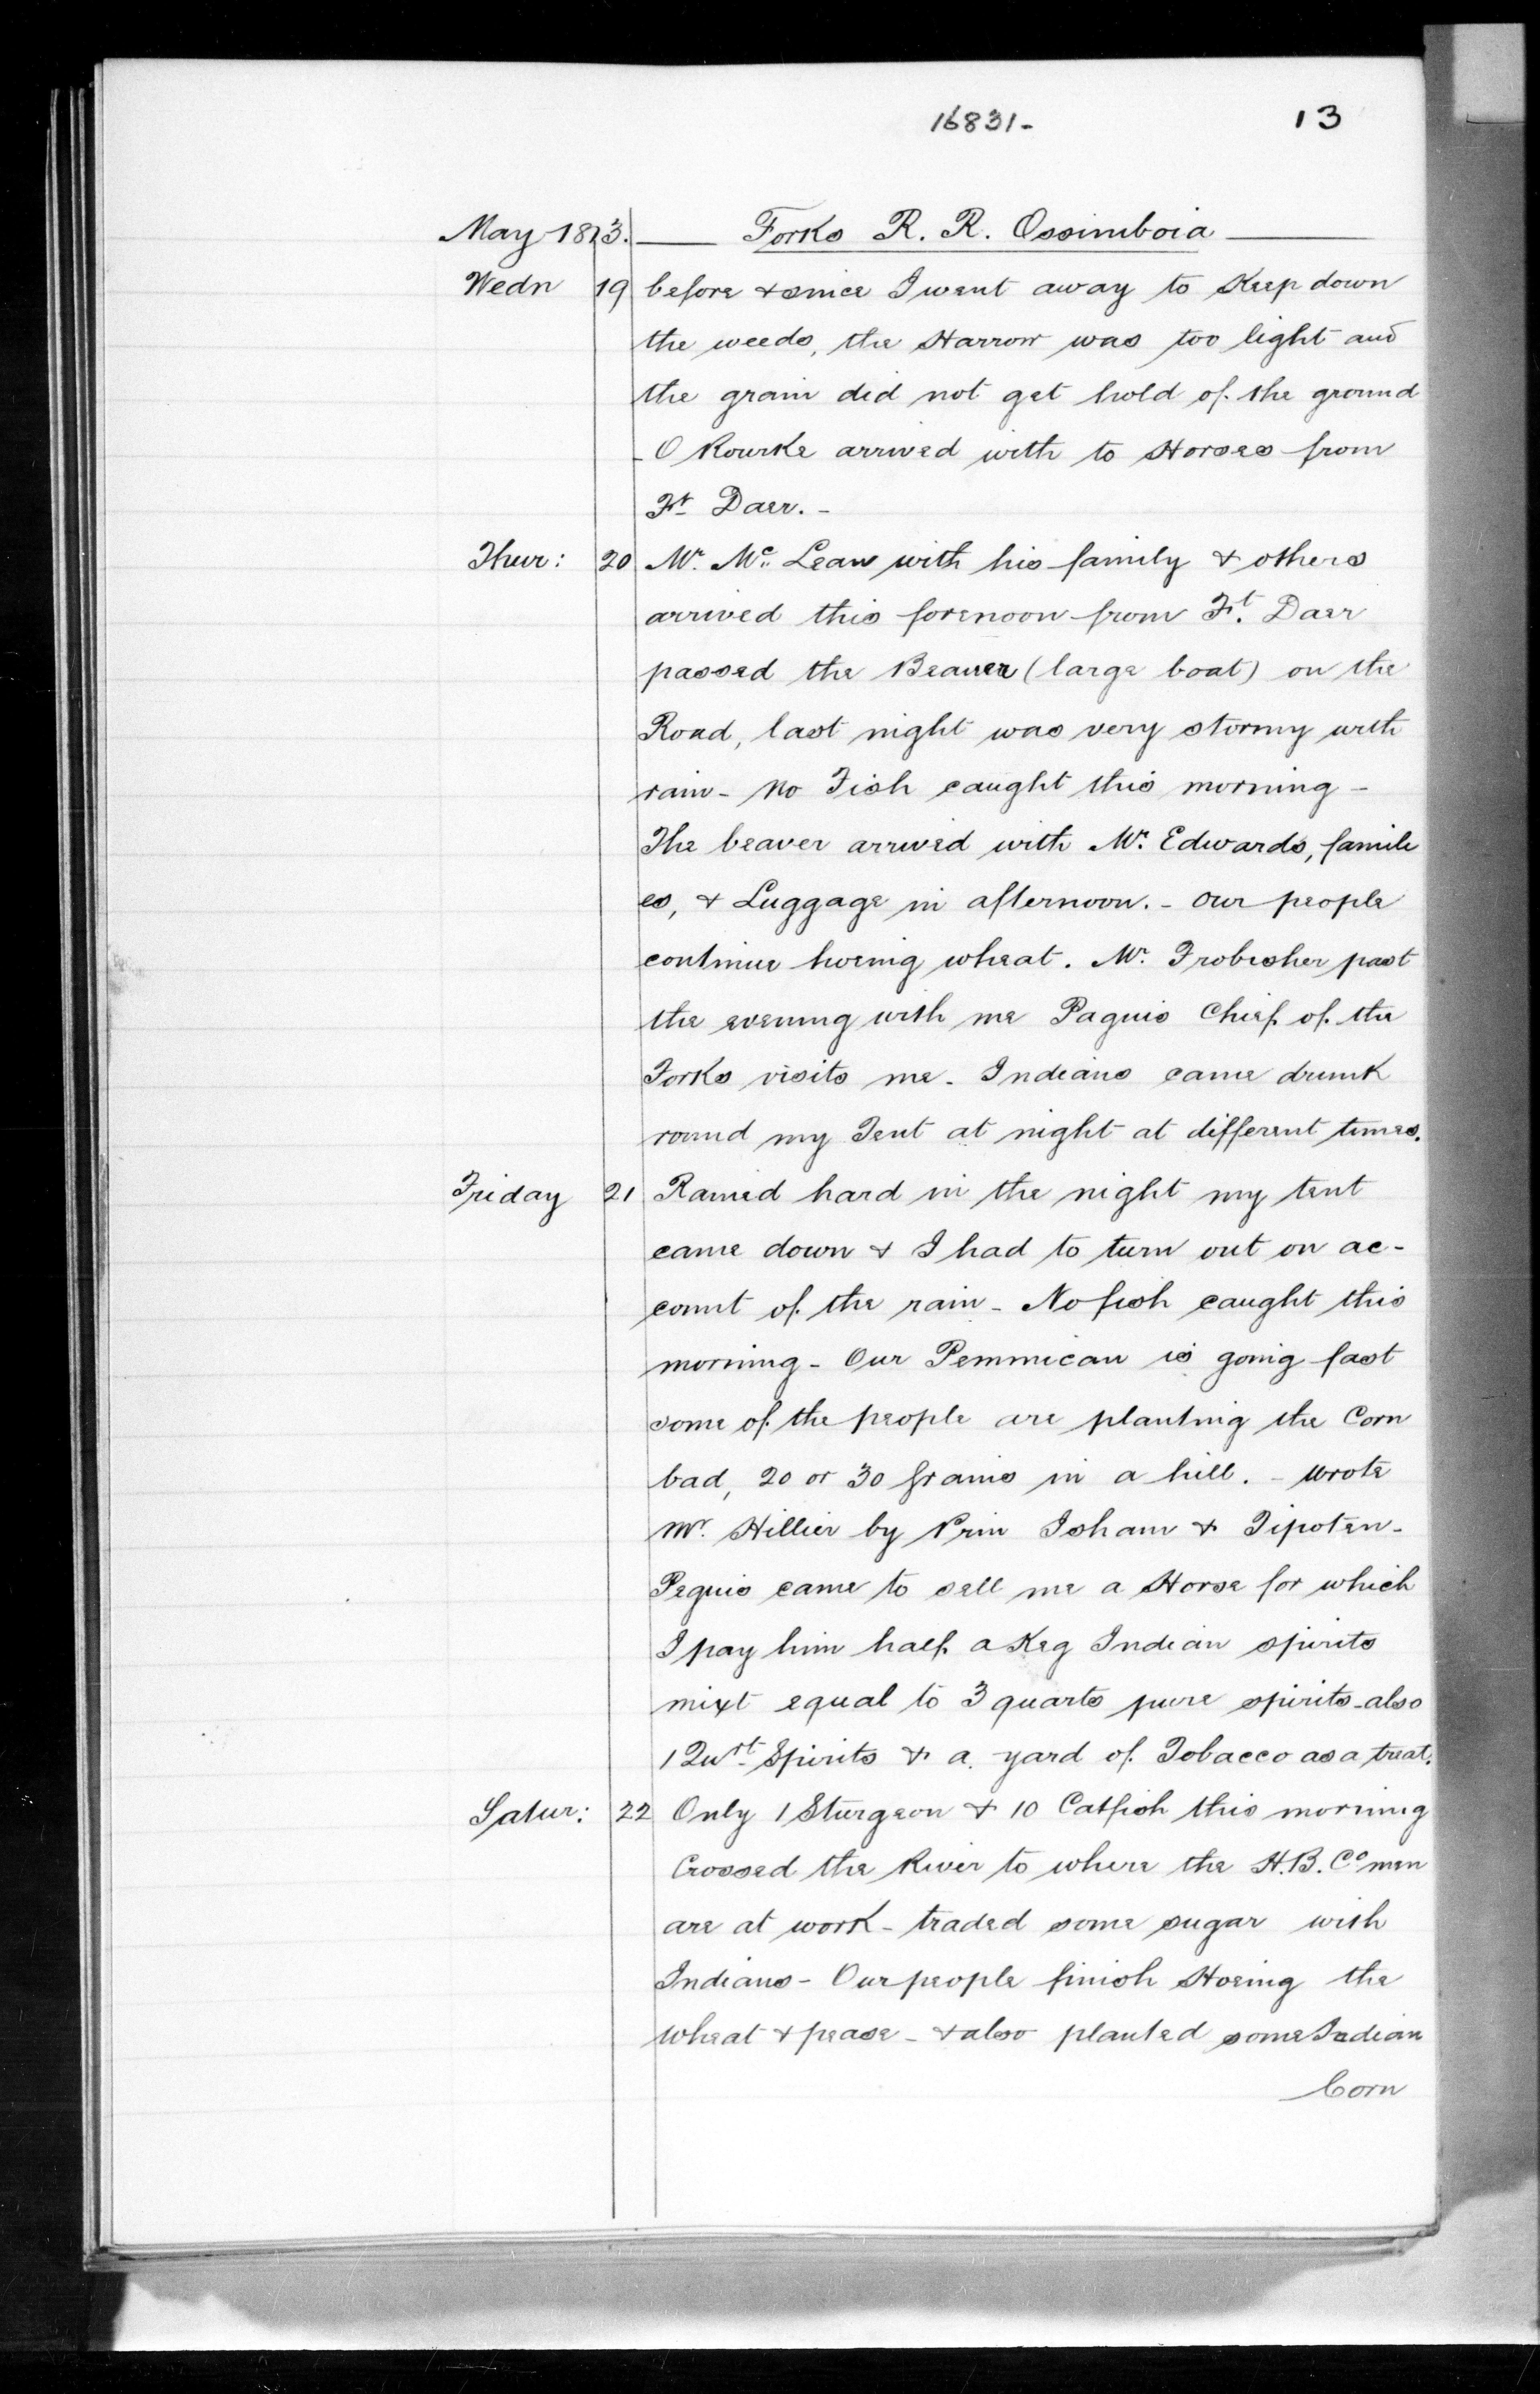 16831- 13
May 1813. Forks R. R. Ossiniboia
Wedn 19 before & since I went away to Keep down
the weeds, the Harrow was too light and
the grain did not get hold of the ground
- O Rourke arrived with to Horses from
Ft Daer. -
Thur: 20 Mr. Mc. Lean with his family & others
arrived this forenoon from Ft. Daer
passed the Beaver (large boat) on the
Road, last night was very stormy with
rain - No Fish caught this morning -
The beaver arrived with Mr. Edwards, famili
es, & Luggage in afternoon. - Our people
continue hoeing wheat. Mr. Frobisher past
the evening with me Paguis Chief of the
Forks visits me - Indians came drunk
round my Tent at night at different times.
Friday 21 Rained hard in the night my tent
came down & I had to turn out on ac-
count of the rain - No fish caught this
morning - Our Pemmican is going fast
some of the people are planting the Corn
bad, 20 or 30 grains in a hill. - Wrote
Mr. Hillier by Prin Isham & Tipoten -
Peguis came to sell me a Horse for which
I pay him half a Keg Indian spirits
mixt equal to 3 quarts pure spirits - also
1 Qurt. Spirits & a yard of Tobacco as a treat.
Satur: 22 Only 1 Sturgeon & 10 Catfish this morning
Crossed the River to where the H.B. Co men
are at work - traded some sugar with
Indians - Our people finish Hoeing the
wheat & pease - & also planted some Indian
Corn